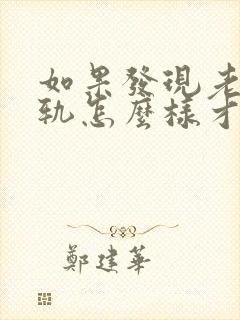 如果發現老
軌怎麼樣才
鄭建華